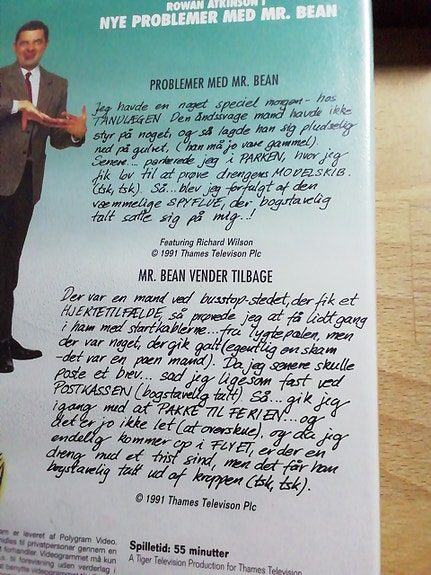 ROWAN ATKINSON I
NYE PROBLEMER MED MR. BEAN
PROBLEMER MED MR. BEAN
Jeg havde en noget speciel morgen - hos
TANDLÆGEN. Den åndssvage mand havde ikke
styr på noget, og så lagde han sig pludselig
ned på gulvet, (han må jo være gammel).
Senere... parkerede jeg i PARKEN, hvor jeg
fik lov til at prøve drengens MODELSKIB.
(tsk, tsk). Så... blev jeg forfulgt af den
væmmelige SPYFLUE, der bogstavelig
talt satte sig på mig..!
Featuring Richard Wilson
© 1991 Thames Televison Plc
MR. BEAN VENDER TILBAGE
Der var en mand ved busstop-stedet, der fik et
HJERTETILFÆLDE, så prøvede jeg at få lidt gang
i ham med startkablerne... fra lygtepælen, men
der var noget, der gik galt (egentlig en skam
- det var en pæn mand). Da jeg senere skulle
poste et brev... sad jeg ligesom fast ved
POSTKASSEN (bogstavelig talt) Så... gik jeg
igang med at PAKKE TIL FERIEN... og
det er jo ikke let (at overskue). og da jeg
endelig kommer op i FLYET, er der en
dreng med et trist sind, men det får han
bogstavelig talt ud af kroppen (tsk, tsk).
© 1991 Thames Televison Plc
am er leveret af Polygram Video.
ndles til privatpersoner gennem en
forhandler. Videogrammet må kun
til forevisning uden vederlag i
Spilletid: 55 minutter
A Tiger Television Production for Thames Television